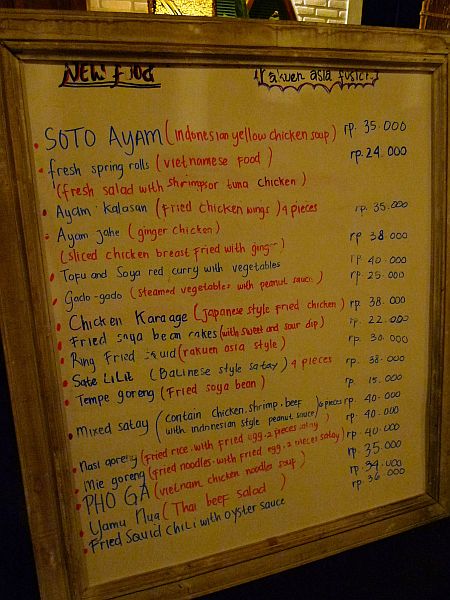 New food
rakuen asia fusion
SOTO AYAM (indonesian yellow chicken soup) rp. 35.000
fresh spring rolls (vietnamese food) rp. 24.000
(fresh salad with shrimpsor tuna chicken)
Ayam kalasan (fried chicken wings) 4 pieces rp. 35.000
Ayam jahe (ginger chicken)
(sliced chicken breast fried with rp. 38.000
Tofu and Soya red curry with vegetables rp. 40.000
Gado-gado (steamed vegetables with peanut sauce) rp. 25.000
Chicken Karaage (japanese style fried chicken) rp. 38.000
Fried soya bean cakes (with sweet and sour dip) rp. 22.000
Ring fried squid (rakuen asia style) rp. 30.000
Sate LiLit (Balinese style satay) 4 pieces rp. 38.000
Tempe goreng (Fried soya bean) rp. 15.000
Mixed satay (contain chicken, shrimp, beef
with indonesian style peanut sauce) 6 pieces rp. 40.000
Nasi goreng (fried rice, with fried egg, 2 pieces satay) rp. 40.000
Mie goreng (fried noodles, with fried egg, 2 pieces satay) rp. 40.000
PHO GA (vietnam, chicken noodles soup) rp. 35.000
Yamu Nua (Thai beef salad) rp. 34.000
Fried Squid ChiLi with oyster sauce rp. 36.000